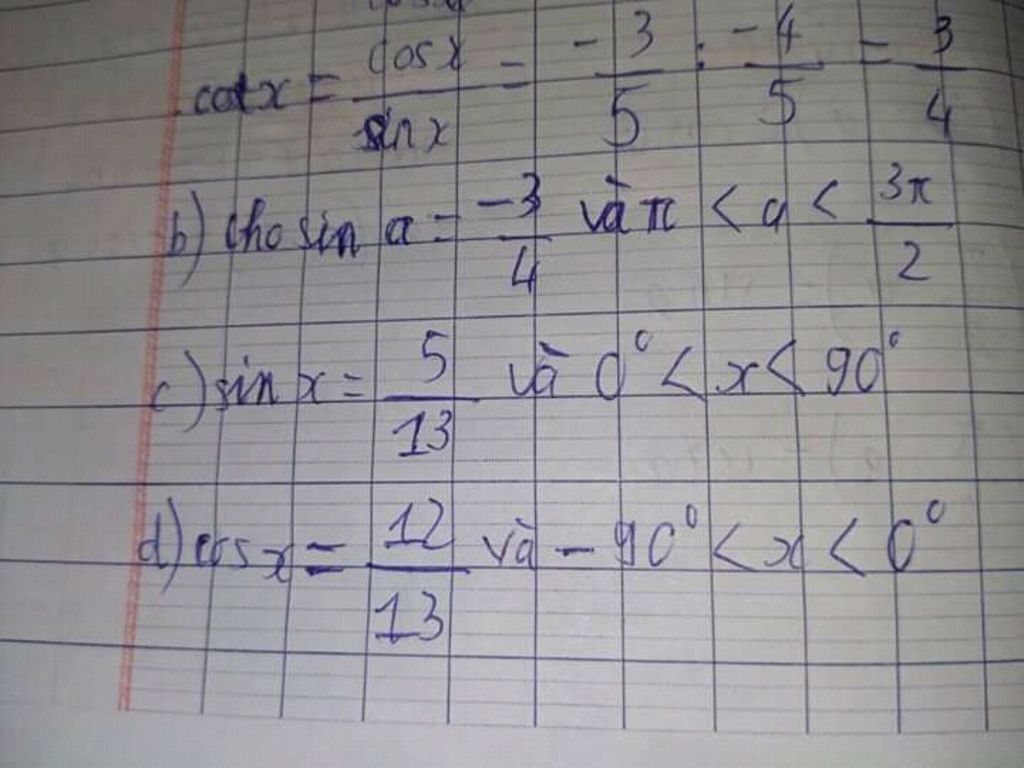 cotx = cosx / sinx = -3/5 : -4/5 = 3/4
b) Cho sin a = -3/4 và π < a < 3π/2
c) sin x = 5/13 và 0° < x < 90°
d) cos x = 12/13 và -90° < x < 0°